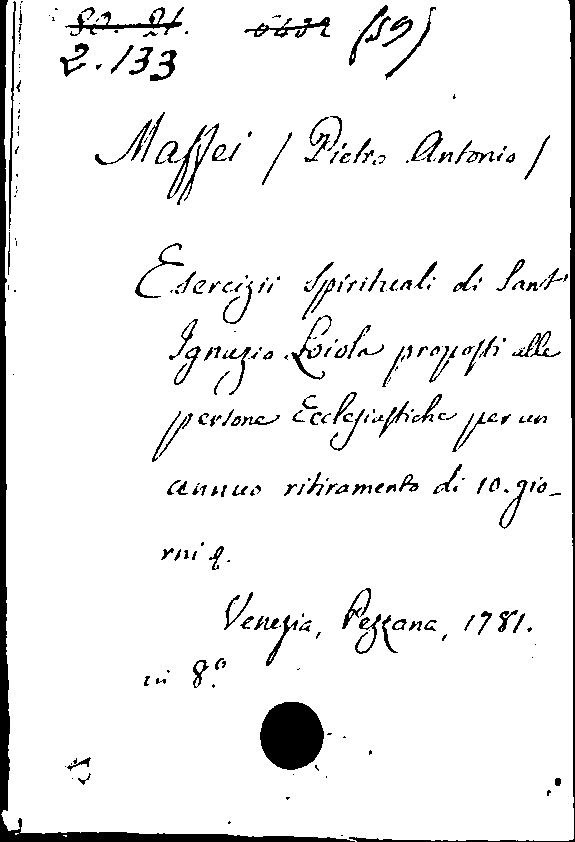 (59)
2.133
Maffei / Pietro Antonio /
Esercizii spirituali di Sant'
Ignazio Loiola proposti alle
persone Ecclesiastiche per un
annuo ritiramento di 10. gio-
rni &.
Venezia, Pezzana, 1781.
in 8.°